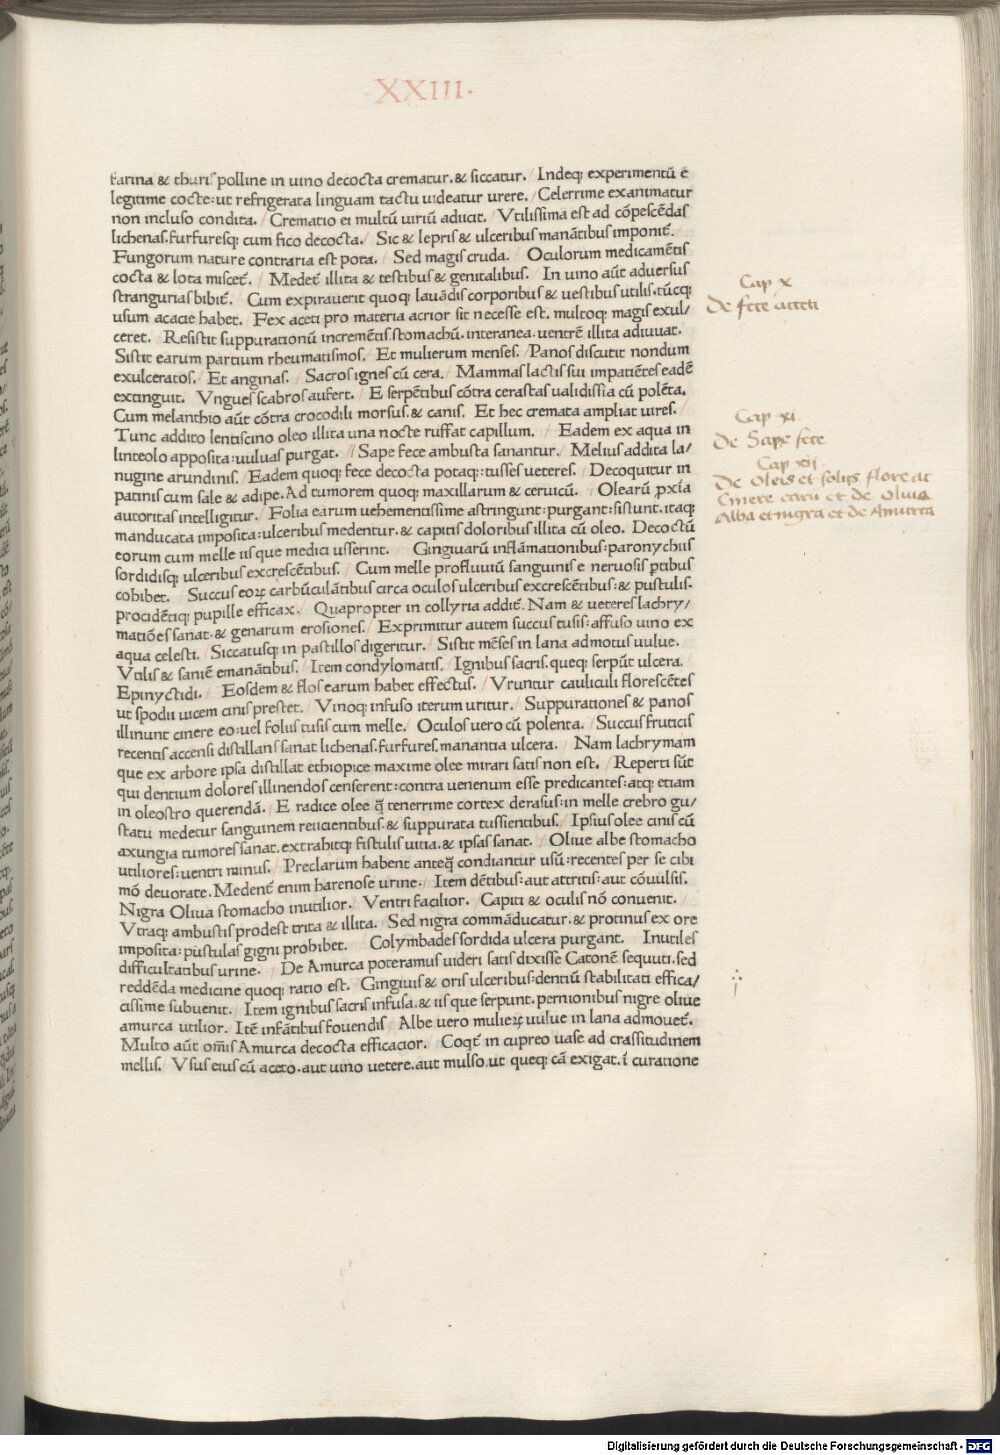 ·XXIII·
farina & thuris polline in uino decocta crematur. & siccatur. / Indeq; experimentũ ẽ
legitime cocte: ut refrigerata linguam tactu uideatur urere. / Celerrime exanimatur
non incluso condita. / Crematio ei multũ uiriũ adiicit. / Vtilissima est ad cõpescẽdas
lichenas. furfuresq; cum fico decocta. / Sic & lepris & ulceribus manãtibus imponit̃.
Fungorum nature contraria est pota. / Sed magis cruda. / Oculorum medicamẽtis
cocta & lota miscet̃. / Medet̃ illita & testibus & genitalibus. / In uino aũt aduersus
strangurias bibit̃. / Cum expirauerit quoq; lauãdis corporibus & uestibus utilis. tũcq;
usum acacie habet. / Fex aceti pro materia acrior sit necesse est. multoq; magis exul/
ceret. / Resistit suppurationũ incremẽtis. stomachũ. interanea. uentrẽ illita adiuuat.
Sistit earum partium rheumatismos. / Et mulierum menses. / Panos discutit nondum
exulceratos. / Et anginas. / Sacros ignes cũ cera. / Mammas lactis sui impatiẽtes eadẽ
extinguit. / Vngues scabros aufert. / E serpẽtibus cõtra cerastas ualidissĩa cũ polẽta.
Cum melanthio aũt cõtra crocodili morsus. & canis. Et hec cremata ampliat uires. /
Tunc addito lentiscino oleo illita una nocte ruffat capillum. / Eadem ex aqua in
linteolo apposita: uuluas purgat. // Sape fece ambusta sanantur. / Melius addita la/
nugine arundinis. / Eadem quoq; fece decocta potaq;: tusses ueteres. / Decoquitur in
patinis cum sale & adipe. Ad tumorem quoq; maxillarum & ceruicũ. / Olearũ ꝓxĩa
autoritas intelligitur. / Folia earum uehementissime astringunt: purgant: sistunt. itaq;
manducata imposita: ulceribus medentur. & capitis doloribus illita cũ oleo. Decoctũ
eorum cum melle iis que medici usserint. / Gingiuarũ inflãmationibus: paronychiis
sordidisq; ulceribus excrescẽtibus. / Cum melle profluuiũ sanguinis e neruosis ꝑtibus
cohibet. / Succus eoꝝ carbũculãtibus circa oculos ulceribus excrescẽtibus: & pustulis.
procidẽtiq; pupille efficax. / Quapropter in collyria addit̃. Nam & ueteres lachry/
matiões sanat. & genarum erosiones. / Exprimitur autem succus tusis: affuso uino ex
aqua celesti. / Siccatusq; in pastillos digeritur. / Sistit mẽses in lana admotus uulue.
Vtilis & saniẽ emanãtibus. / Item condylomatis. / Ignibus sacris. queq; serpũt ulcera.
Epinyctidi. / Eosdem & flos earum habet effectus. / Vruntur cauliculi florescẽtes
ut spodii uicem cinis prestet. / Vinoq; infuso iterum uritur. / Suppurationes & panos
illinunt cinere eo: uel foliis tusis cum melle. / Oculos uero cũ polenta. / Succus fruticis
recentis accensi distillans sanat lichenas. furfures. manantia ulcera. / Nam lachrymam
que ex arbore ipsa distillat ethiopice maxime olee mirari satis non est. / Reperti sũt
qui dentium dolores illinendos censerent: contra uenenum esse predicantes: atq; etiam
in oleostro querendã. / E radice olee q̃ tenerrime cortex derasus: in melle crebro gu/
statu medetur sanguinem reiicientibus. & suppurata tussientibus. / Ipsius olee cinis cũ
axungia tumores sanat. extrahitq; fistulis uitia. & ipsas sanat. / Oliue albe stomacho
utiliores: uentri minus. / Preclarum habent anteq̃ condiantur usũ: recentes per se cibi
mõ deuorate. Medent̃ enim harenose urine. / Item dẽtibus: aut attritis: aut cõuulsis.
Nigra Oliua stomacho inutilior. / Ventri facilior. / Capiti & oculis nõ conuenit. /
Vtraq; ambustis prodest trita & illita. / Sed nigra commãducatur. & protinus ex ore
imposita: pustulas gigni prohibet. / Colymbades sordida ulcera purgant. / Inutiles
difficultatibus urine. / De Amurca poteramus uideri satis dixisse Catonẽ sequuti. sed
reddẽda medicine quoq; ratio est. / Gingiuis & oris ulceribus: dentiũ stabilitati effica/
cissime subuenit. / Item ignibus sacris infusa. & iis que serpunt. pernionibus nigre oliue
amurca utilior. / Itẽ infãtibus fouendis / Albe uero mulieꝝ uulue in lana admouet̃.
Multo aũt om̃is Amurca decocta efficacior. / Coqt̃ in cupreo uase ad crassitudinem
mellis. / Vsus eius cũ aceto. aut uino uetere. aut mulso. ut queq; cã exigat. ĩ curatione
Cap x
De fece aceti
Cap xi.
De Sape fece
Cap xij.
De Oleis et folijs flore et
Cinere earũ et de Oliua
Alba et nigra et de Amurca
Digitalisierung gefördert durch die Deutsche Forschungsgemeinschaft - DFG